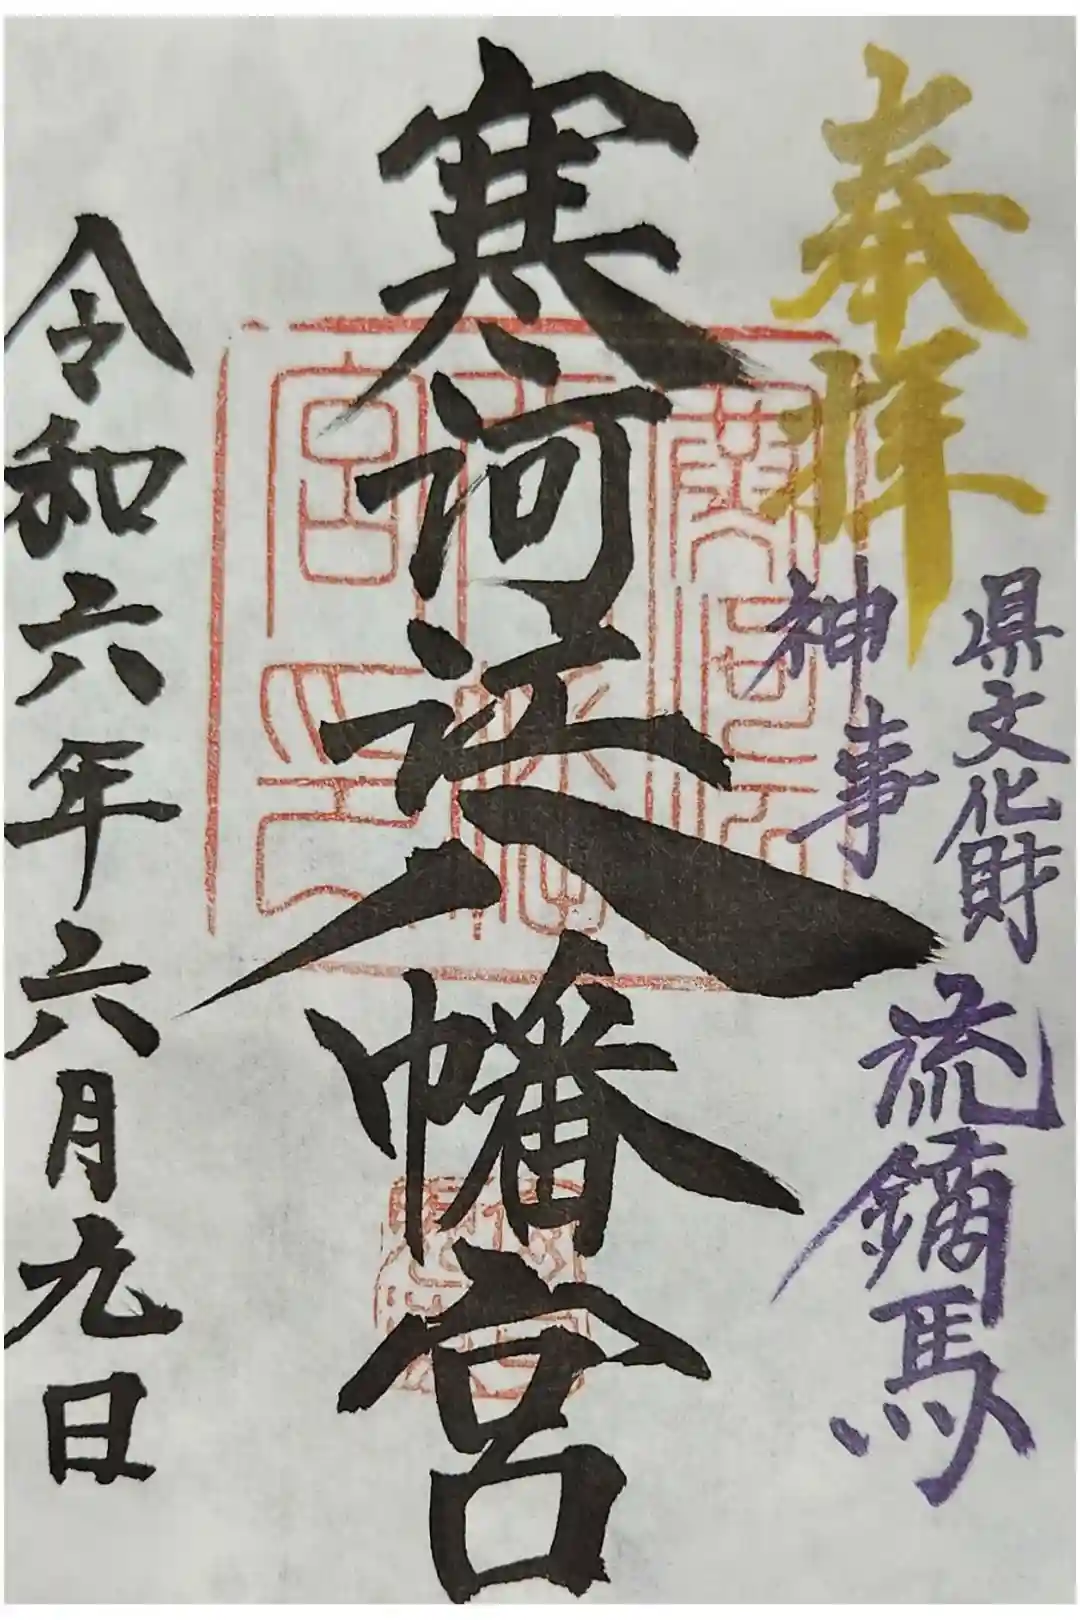 奉拝
県文化財
流鏑馬
神事
寒河江八幡宮
令和六年六月九日